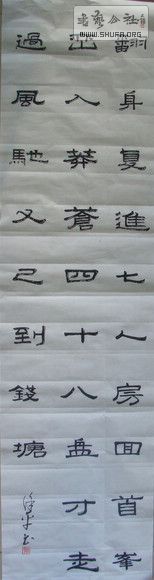 書藝公社
WWW.SHUFA.ORG
翻身复進七人房回首峯
峦入莽蒼四十八盘才走
過風馳又己到錢塘